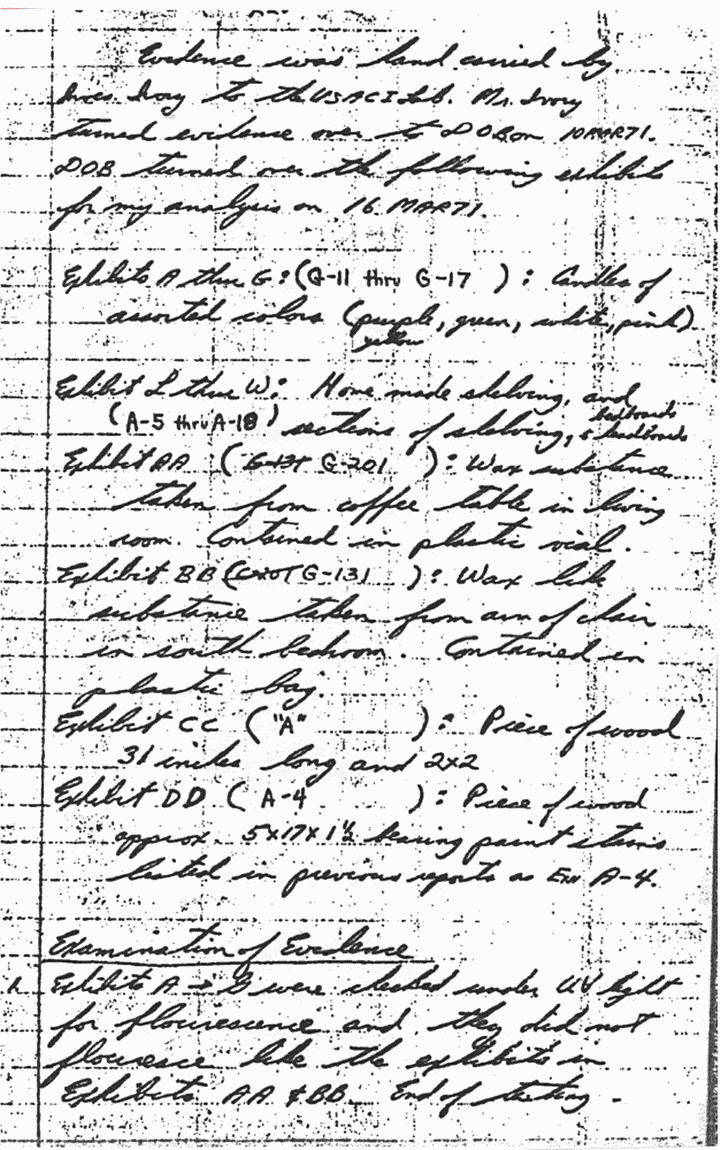 Evidence was hand carried by
Ivory to the USACI Lab. Mr. Ivory
turned evidence over to DOB on 10 MAR71.
DOB turned over the following exhibits
for my analysis on 16 MAR71.
Exhibits A thru G: (G-11 thru G-17 ) : Candles of
assorted colors (purple, green, white, pink)
yellow
Exhibit L thru W: Home made shelving, and
(A-5 thru A-18) sections of shelving, & headboards
Exhibit AA : ( G-201 ) : Wax substance
taken from coffee table in living
room. Contained in plastic vial.
Exhibit BB ( G-131 ) : Wax like
substance taken from arm of chair
in south bedroom. Contained in
plastic bag.
Exhibit CC ( "A" ) : Piece of wood
31 inches long and 2x2
Exhibit DD ( A-4 ) : Piece of wood
approx. 5x17x1½ bearing paint stains
listed in previous reports as Exh A-4.
Examination of Evidence
1. Exhibits A → G were checked under UV light
for flourescence and they did not
flouresce like the exhibits in
Exhibits AA & BB. End of testing.